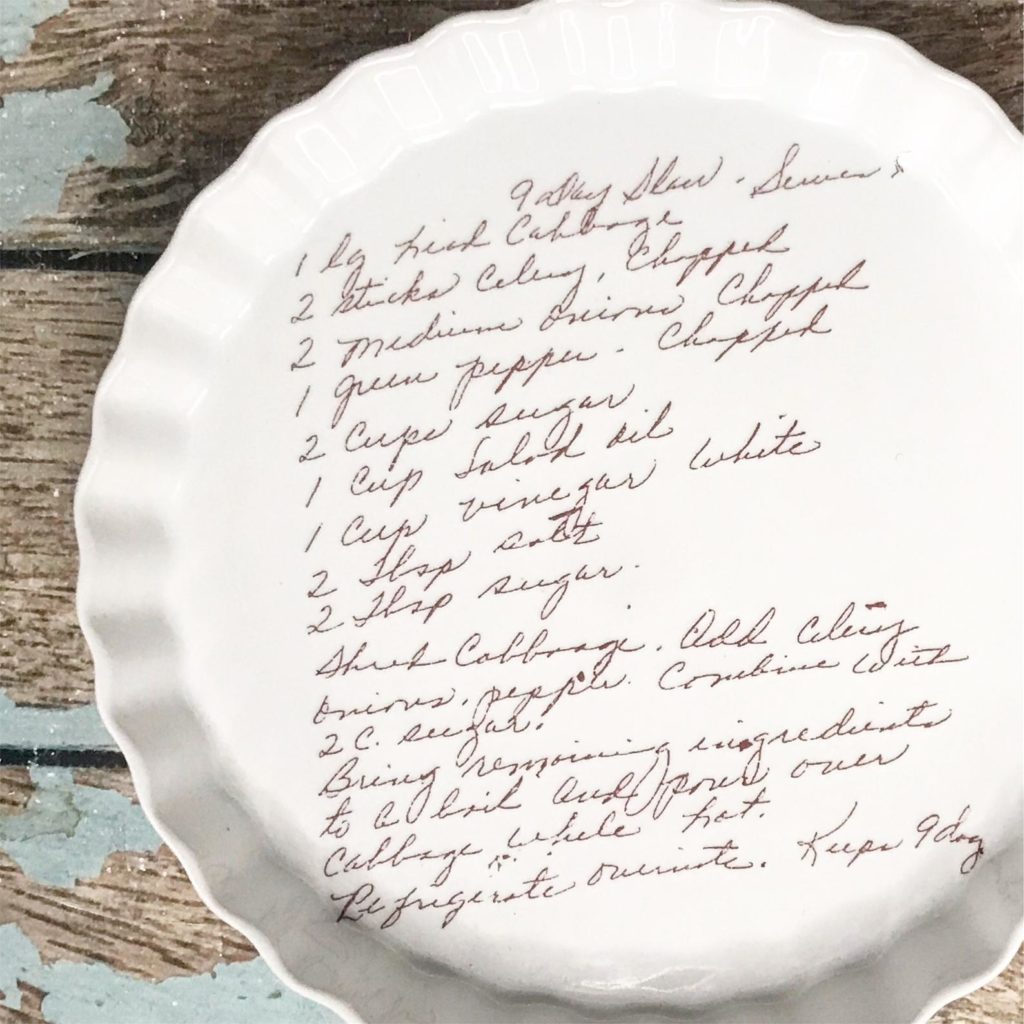 9 Day Slaw - Serves
1 lg Head Cabbage
2 sticks Celery, Chopped
2 medium onions Chopped
1 green pepper - Chopped
2 Cups sugar
1 Cup Salad oil
1 Cup vinegar White
2 Tbsp salt
2 Tbsp sugar.
Shred Cabbage. Add Celery
onions, pepper. Combine with
2 C. sugar.
Bring remaining ingredients
to a boil and pour over
Cabbage while hot.
Refrigerate overnite. Keeps 9 day